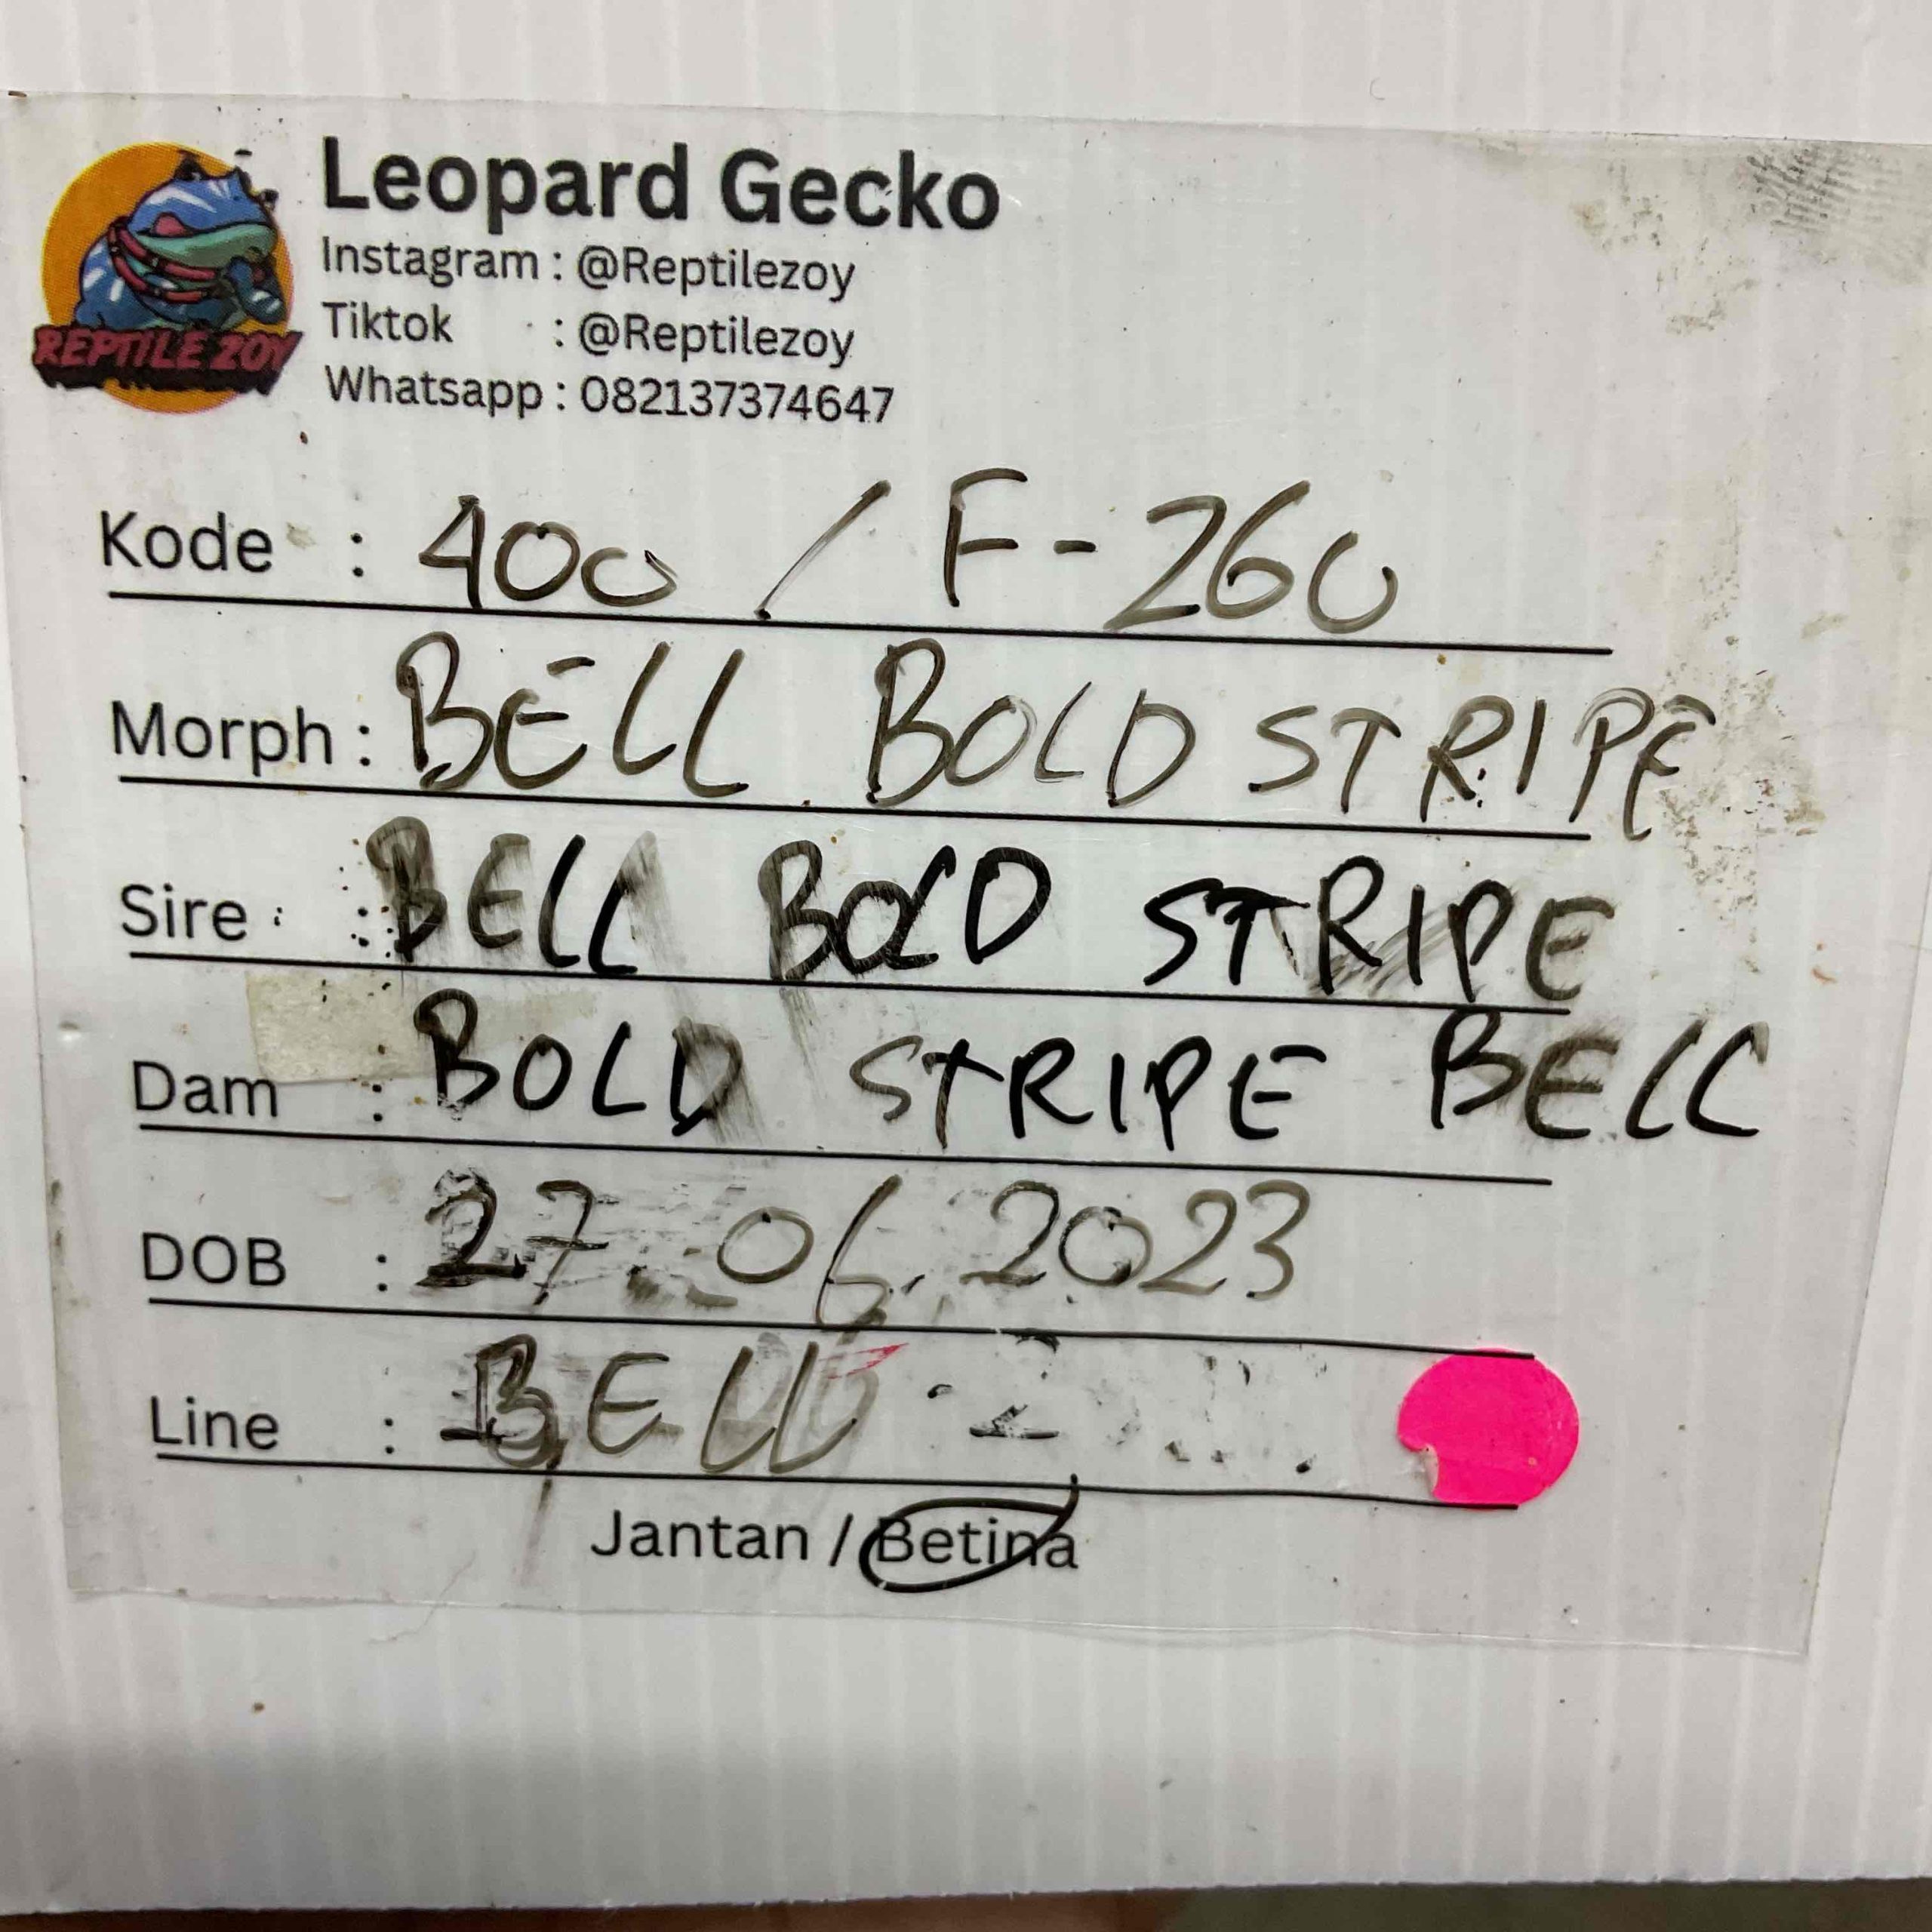 Leopard Gecko
Instagram : @Reptilezoy
Tiktok : @Reptilezoy
Whatsapp : 082137374647
REPTILE ZOY
Kode : 400 / F-260
Morph : BELL BOLD STRIPE
Sire : BELL BOLD STRIPE
Dam : BOLD STRIPE BELL
DOB : 27.06.2023
Line : BELL
Jantan / Betina